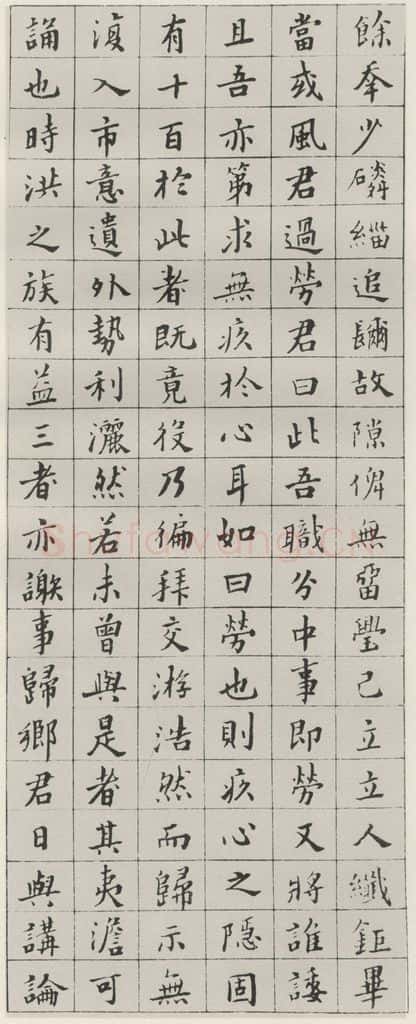 餘奉少磷緇追镾故隙俾無畱璺己立立人纖鉅畢
當或風君過勞君曰此吾職分中事即勞又將誰諉
且吾亦第求無疚於心耳如曰勞也則疚心之隱固
有十百於此者既竟役乃徧拜交游浩然而歸示無
復入市意遺外勢利灑然若未曾與是者其夷澹可
誦也時洪之族有益三者亦謝事歸鄉君日與講論
Shufawang.CN